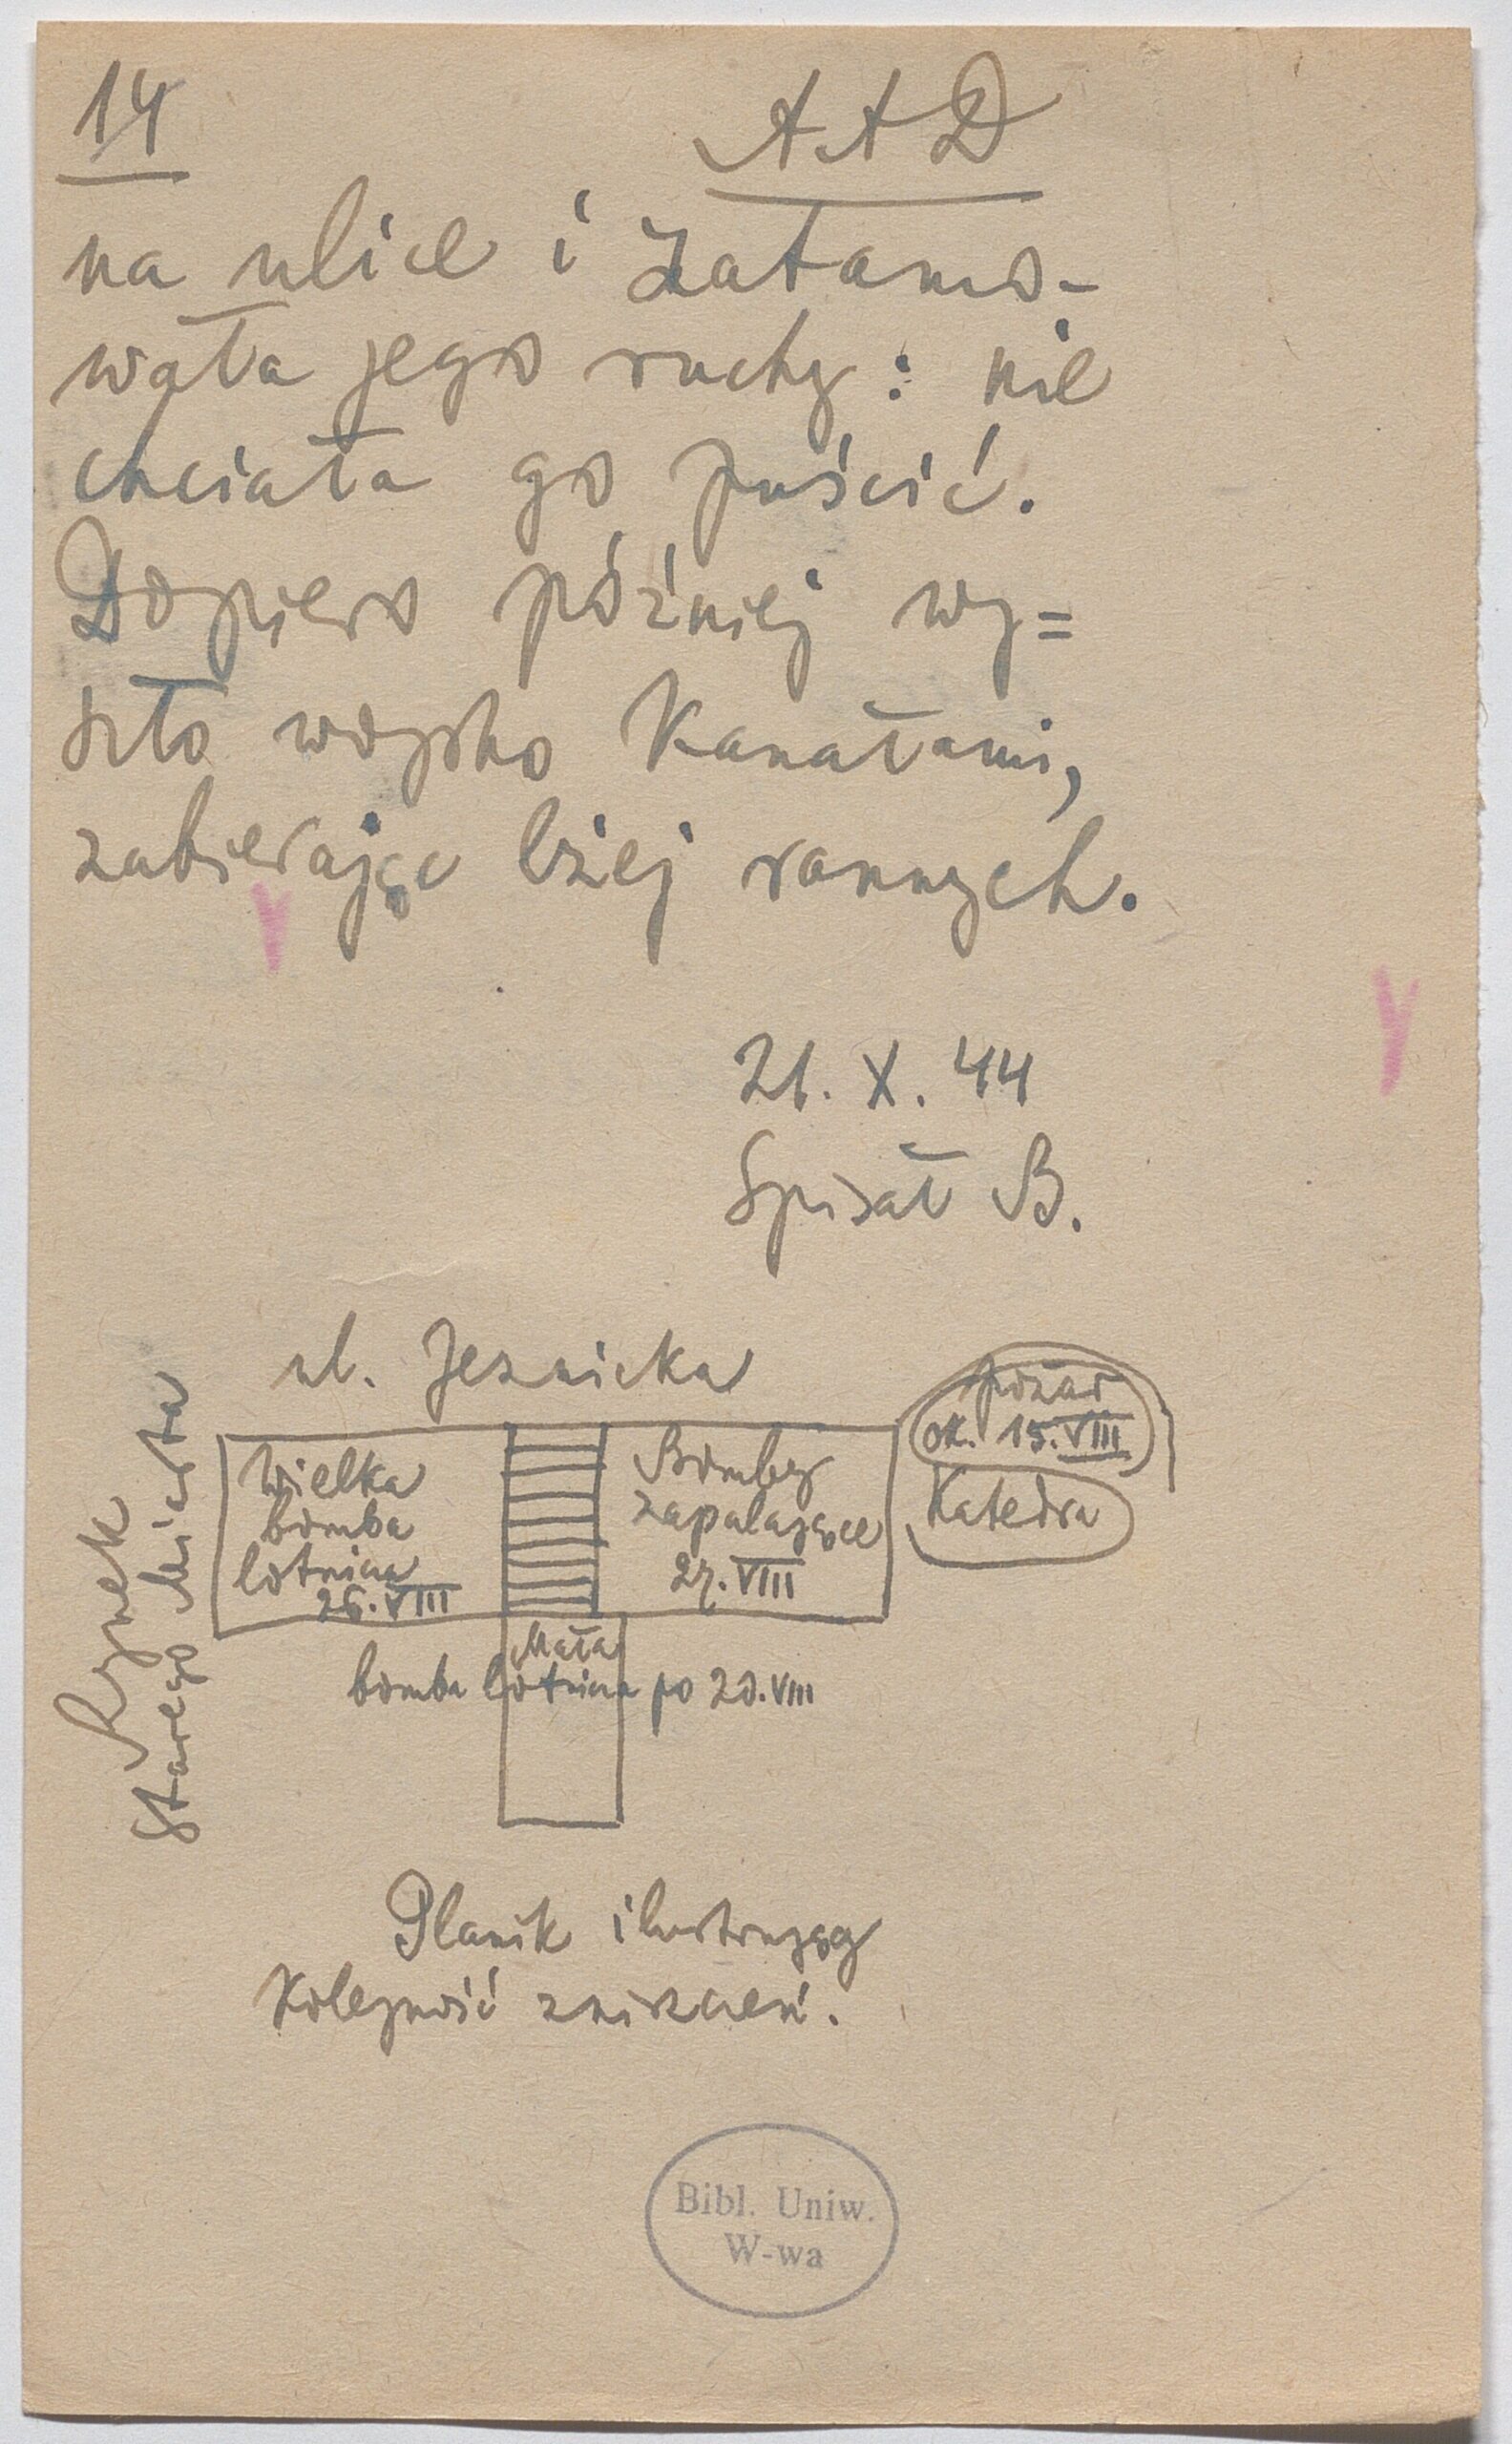 14
AAD
na ulice i zatamo-
wała jego ruchy: nie
chciała go puścić.
Dopiero później wy=
szło wojsko kanałami,
zabierając lżej rannych.
21. X. 44
Spisał B.
ul. Jezuicka
Rynek
Starego Miasta
Wielka
bomba
lotnicza
26. VIII
Bomby
zapalające
27. VIII
pożar
ok. 15. VIII
Katedra
Mała
bomba lotnicza po 20. VIII
Planik ilustrujący
Kolejność zniszczeń.
Bibl. Uniw.
W-wa